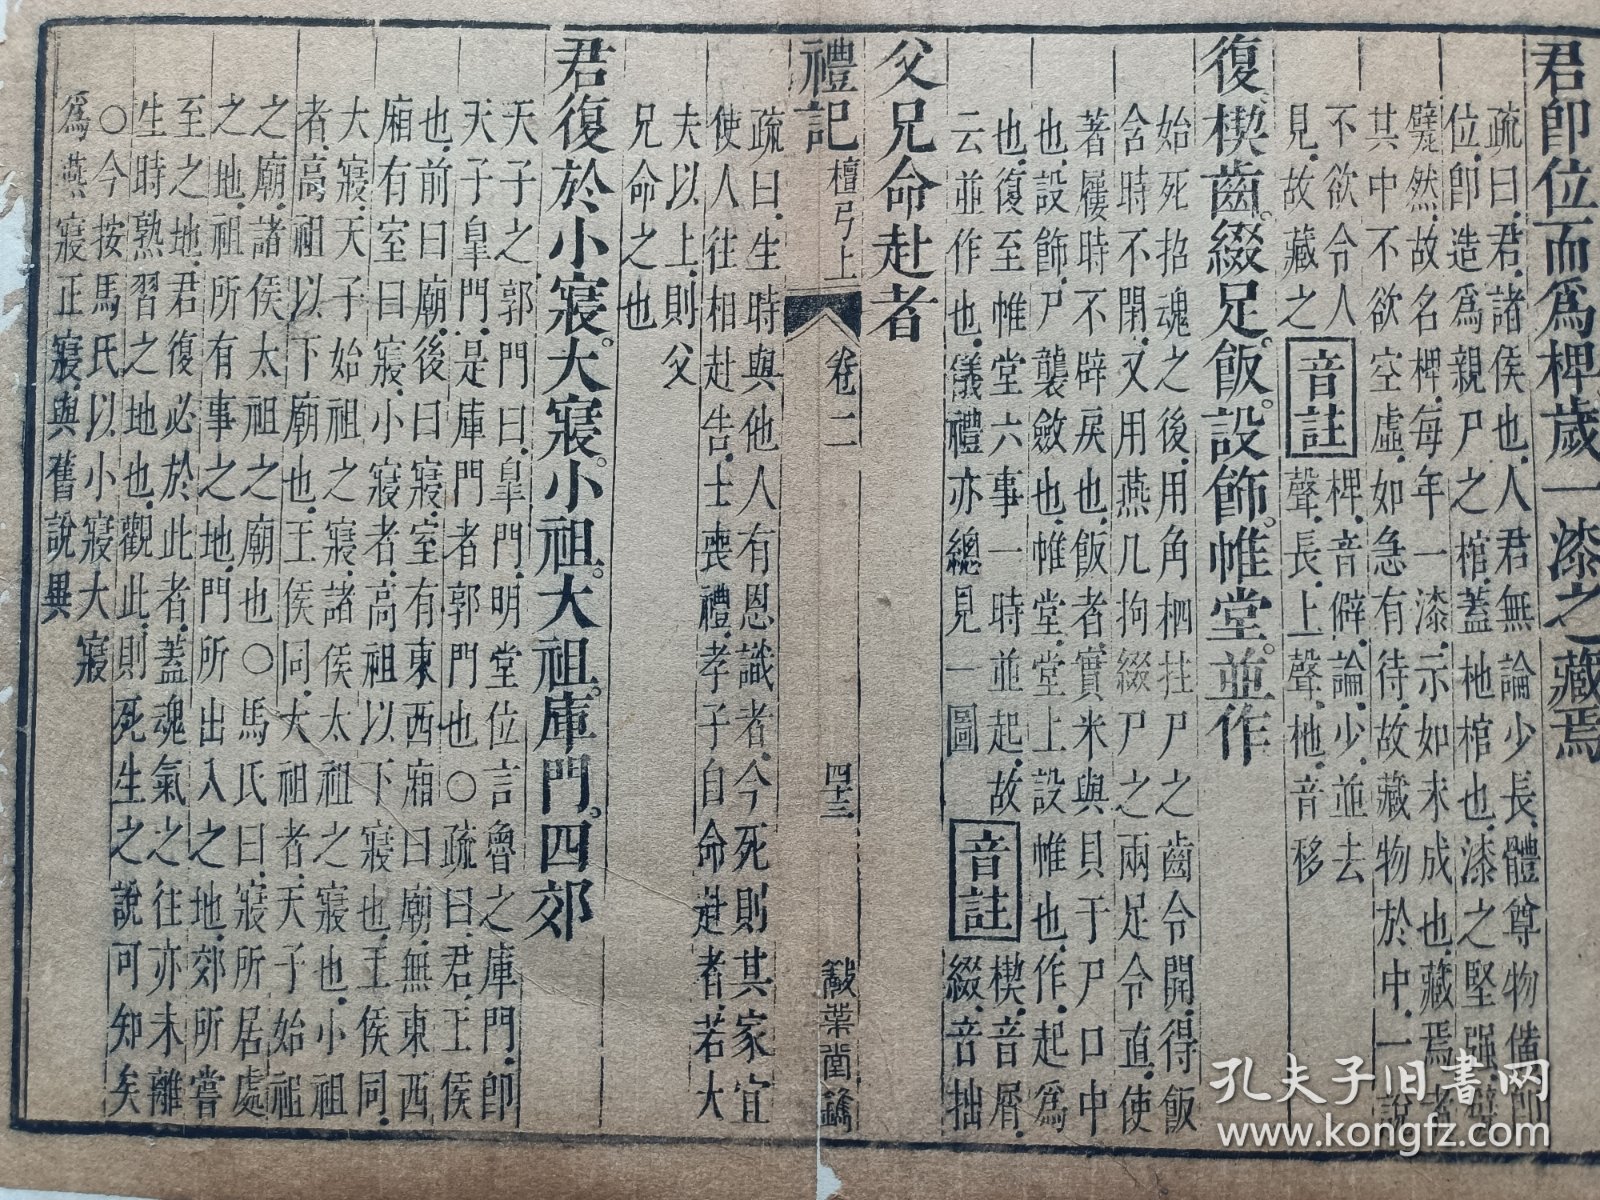 君卽位而爲椑歲一漆之藏焉
疏曰君諸侯也人君無論少長體尊物備卽
位卽造爲親尸之棺蓋杝棺也漆之堅强
甓然故名椑每年一漆示如未成也藏焉者
其中不欲空虛如急有待故藏物於中一說
不欲令人
見故藏之
音註
椑音僻論少並去
聲長上聲杝音移
復楔齒綴足飯設飾帷堂並作
始死招魂之後用角柶拄尸之齒令開得飯
含時不閉又用燕几拘綴尸之兩足令直使
著屨時不辟戾也飯者實米與貝于尸口中
也設飾尸襲斂也帷堂堂上設帷也作起爲
也復至帷堂六事一時並起故
云並作也儀禮亦總見一圖
音註
楔音屑
綴音拙
父兄命赴者
禮記
檀弓上
卷二
四十三
敬業堂鐫
疏曰生時與他人有恩識者今死則其家宜
使人往相赴告士喪禮孝子自命赴者若大
夫以上則父
兄命之也
君復於小寢大寢小祖大祖庫門四郊
天子之郭門曰臯門明堂位言魯之庫門卽
天子臯門是庫門者郭門也○疏曰君王侯
也前曰廟後曰寢室有東西廂曰廟無東西
廂有室曰寢小寢者高祖以下寢也王侯同
大寢天子始祖之寢諸侯太祖之寢也小祖
者高祖以下廟也王侯同大祖者天子始祖
之廟諸侯太祖之廟也○馬氏曰寢所居處
之地祖所有事之地門所出入之地郊所嘗
至之地君復必於此者蓋魂氣之往亦未離
生時熟習之地也觀此則死生之說可知矣
○今按馬氏以小寢大寢
爲燕寢正寢與舊說異
孔夫子旧書网
www.kongfz.com